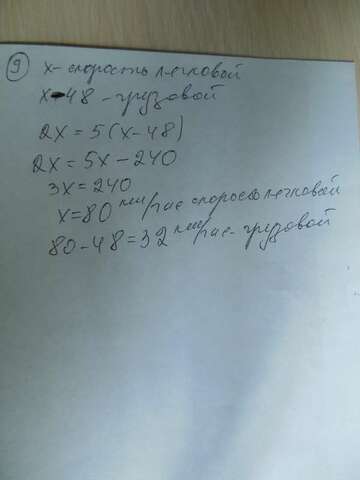 9 x - скорость легковой
x-48 - грузовой
2x = 5(x-48)
2x = 5x-240
3x = 240
x=80 км/час скорость легковой
80-48=32 км/час - грузовой